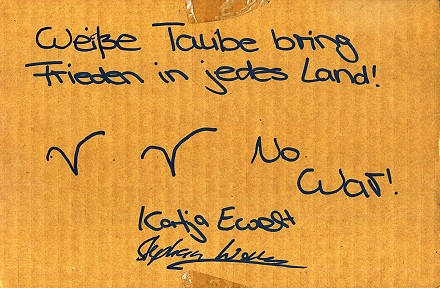 Weiße Taube bring
Frieden in jedes Land!
No
War!
Katja Ewert
Stephan